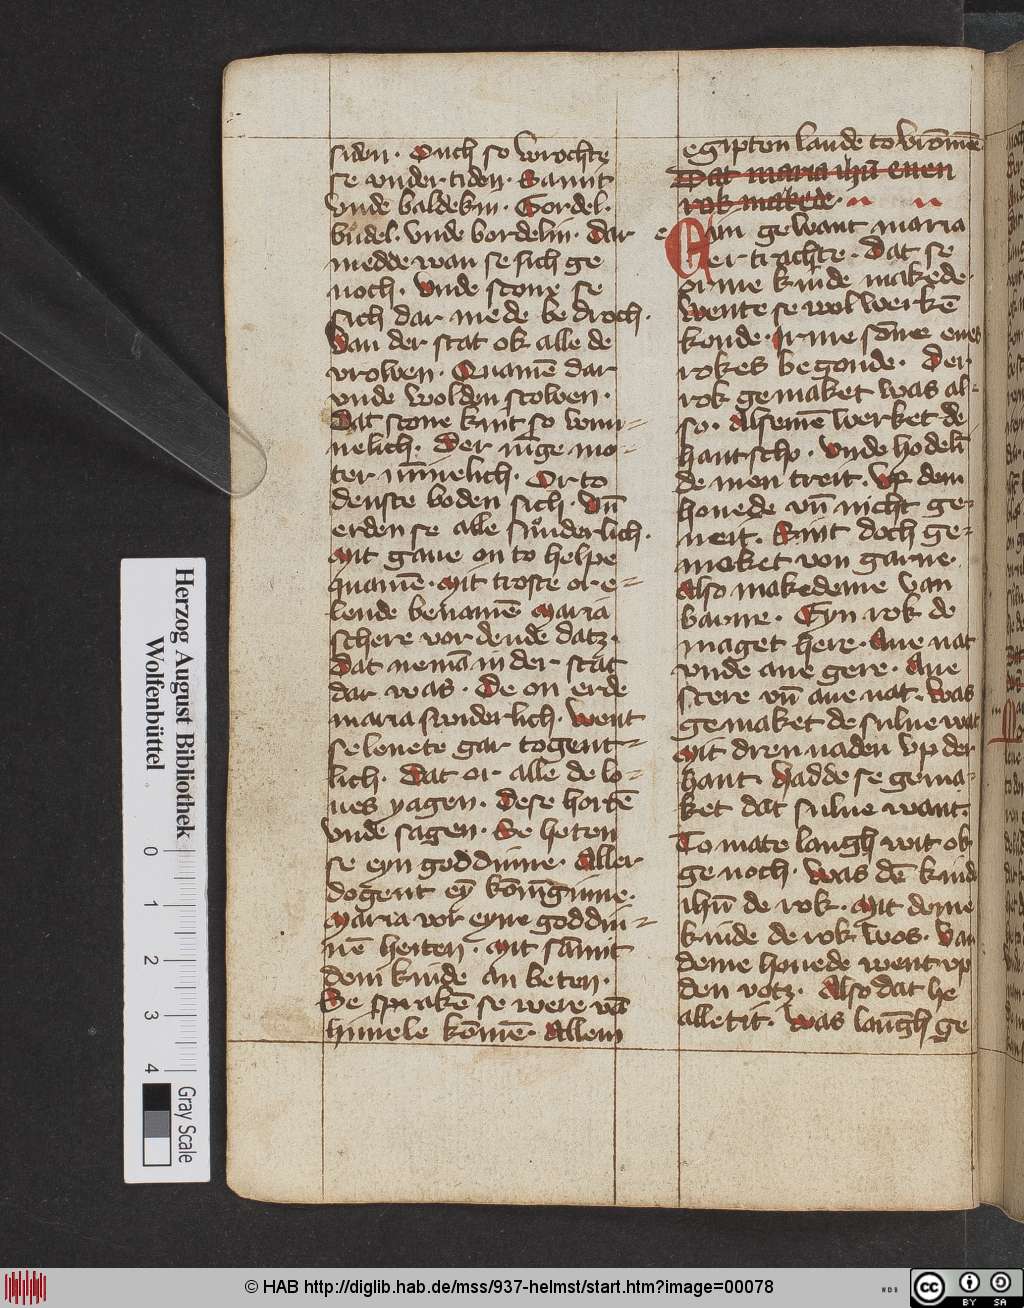 siden. Ouch so wrochte
se vnder tiden. Samit
Vnde baldekin. Gordel.
budel. Vnde bordelin. Dar
medde wan se sich ge
noch. Vnde scone se
sich dar mede be droch.
Van der stat ok alle de
vrowen. Quamē dar
vnde wolden scowen.
Dat scone kint so wun=
nelich. Der iūge mo=
ter mīnelich. Or to
denste boden sich. Vn̄
erden se alle sunderlich.
Mit gaue on to helpe
quamē. Mit troste or e=
lende benamē Maria
schere vor dende datz.
Dat nemā in der stat
dar was. De on erde
maria sunderlich. Went
se leuete gar togent=
lich. Dat or alle de lo=
ues yagen. Dese hordē
vnde sagen. Se heten
se eyn goddinne. Aller
dogent eȳ kōnīginne.
Maria vor eyne goddin=
nē heiten. Mit sāmit
dem kinde an beten.
Se sprakē se were vā
himele kōmē. Allem
egipten lande to vrōmē
Dat maria ihū enen
rok makede.
e Eyn gewant maria
er trachte. Dat se
orme kinde makede.
Wente se wol werkē
konde. Irme sōne enes
rokes begonde. Der
rok gemaket was al=
so. Alsemē werket de
hantscho. Vnde hodelī
de men treit. Vp dem
houede vn̄ nicht ge=
neit. Sint doch ge=
maket von garne.
Also makedeme van
barne. Eyn rok de
maget here. Ane nat
vnde ane gere. Ane
scere vn̄ ane nat. Was
gemaket de sulue wat
Mit dren naden vp der
hant. Hadde se gema=
ket dat sulue want.
To mate langh wit ok
genoch. Was dē kinde
ihū de rok. Mit deme
kinde de rok wos. Van
deme houede went vp
den votz. Also dat he
alletit. Was lan̄gh ge
Herzog August Bibliothek
Wolfenbüttel
0
1
2
3
4
Gray Scale
© HAB http://diglib.hab.de/mss/937-helmst/start.htm?image=00078
cc BY SA